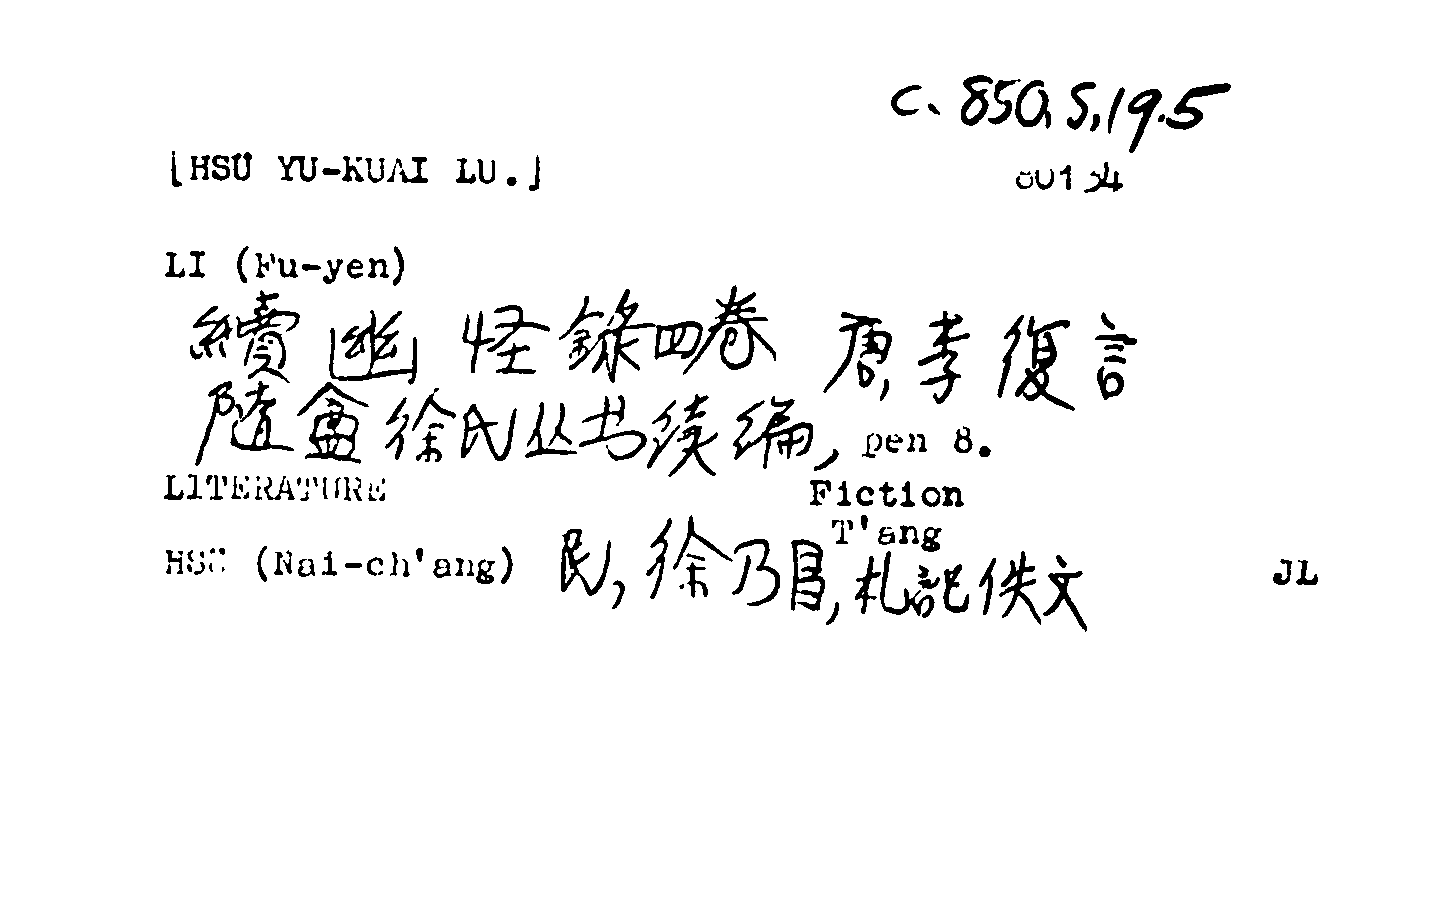 C. 850.S.19.5
[HSÜ YU-KUAI LU.]
80134
LI (Fu-yen)
續幽怪錄四卷 唐, 李復言
隨盦徐氏丛书续编, pen 8.
LITERATURE Fiction
T'ang
HSÜ (Nai-ch'ang) 民, 徐乃昌, 札記佚文 JL